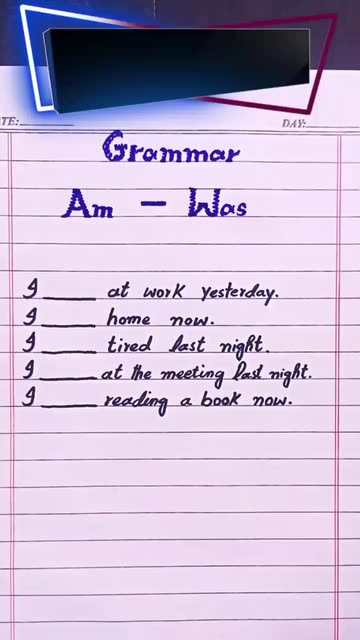 TE:
DAY:
Grammar
Am - Was
I ______ at work yesterday.
I ______ home now.
I ______ tired last night.
I ______ at the meeting last night.
I ______ reading a book now.